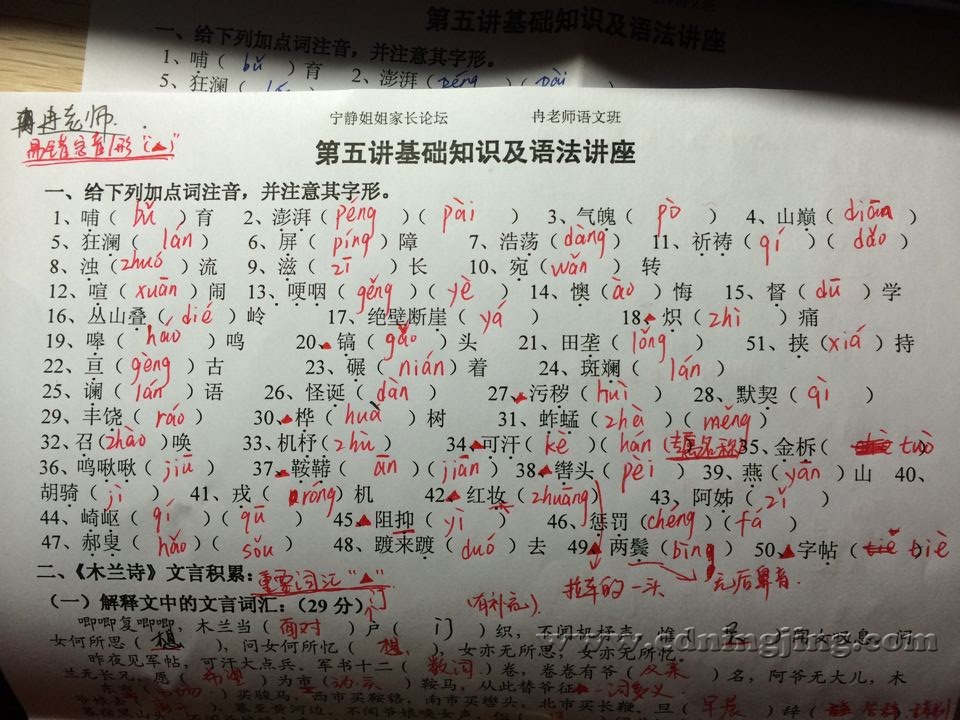 第五讲基础知识及语法讲座
一、给下列加点词注音，并注意其字形。
1、哺（bǔ）育 2、澎湃（péng）（pài
5、狂澜（
冉老师
宁静姐姐家长论坛 冉老师语文班
易错音/形"▲"
第五讲基础知识及语法讲座
一、给下列加点词注音，并注意其字形。
1、哺（bǔ）育 2、澎湃（péng）（pài） 3、气魄（pò） 4、山巅（diān）
5、狂澜（lán） 6、屏（píng）障 7、浩荡（dàng） 11、祈祷（qí）（dǎo）
8、浊（zhuó）流 9、滋（zī）长 10、宛（wǎn）转
12、喧（xuān）闹 13、哽咽（gěng）（yè） 14、懊（ào）悔 15、督（dū）学
16、丛山叠（dié）岭 17、绝壁断崖（yá） 18、▲炽（zhì）痛
19、嗥（háo）鸣 20、▲镐（gǎo）头 21、田垄（lǒng） 51、挟（xiá）持
22、亘（gèng）古 23、碾（nián）着 24、斑斓（lán）
25、谰（lán）语 26、怪诞（dàn） 27、▲污秽（huì） 28、默契（qì）
29、丰饶（ráo） 30、▲桦（huà）树 31、蚱蜢（zhà）（měng）
32、召（zhào）唤 33、机杼（zhù） 34、▲可汗（kè）（hán）（专属名称 35、金柝（tuò）
36、鸣啾啾（jiū） 37、▲鞍鞯（ān）（jiān） 38、▲辔头（pèi） 39、燕（yān）山 40、
胡骑（jì） 41、戎（róng）机 42、▲红妆（zhuāng） 43、阿姊（zǐ）
44、崎岖（qí）（qū） 45、▲阻抑（yì） 46、惩罚（chěng）（fá）
47、郝叟（hǎo）（sǒu） 48、踱来踱（duó）去 49、▲两鬓（bìng） 50、▲字帖（tiè）
拉车的一头 无后鼻音
二、《木兰诗》文言积累：重要词汇"▲"
（一）解释文中的文言词汇：（29 分） （有补充）
唧唧复唧唧，木兰当（面对）户（门）织，不闻机杼声，惟（ ）闻女叹息。问
女何所思（想），问女何所忆（想），女亦无所思，女亦无所忆。
昨夜见军帖，可汗大点兵，军书十二（数词）卷，卷卷有爷（父亲）名，阿爷无大儿，木
兰无长兄，愿（希望）为市（动词）鞍马，从此替爷征。一词多义
东市（ ）买骏马，西市买鞍鞯，南市买辔头，北市买长鞭。旦（早晨）辞（
www.cdningjing.com